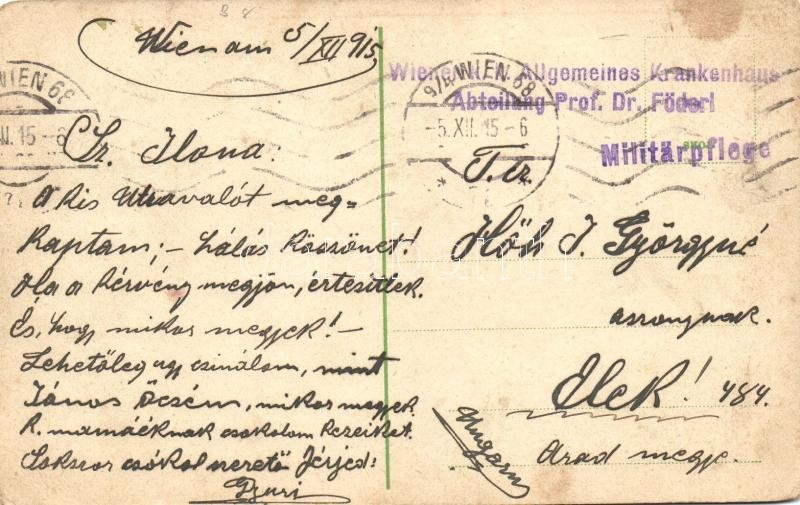 Wien am 5/XII 915
WIEN 68
Wiener k. k. Allgemeines Krankenhaus
Abteilung Prof. Dr. Föderl
Militärpflege
9/4 WIEN 68
-5.XII.15-6
Ilona:
A kis Utravalót meg-
kaptam; – hálás köszönet!
Ha a kérvény megjön, értesitlek.
És, hogy mikor megyek! –
Lehetőleg ugy csinálom, mint
János öcsém, mikor megyek.
K. mamáéknak csókolom kezeiket.
Sokszor csókol szerető Férjed:
Gyuri
T. cz.
Höd I. Györgyné
asszonynak.
Elek! 484.
Arad megye.
Ungarn